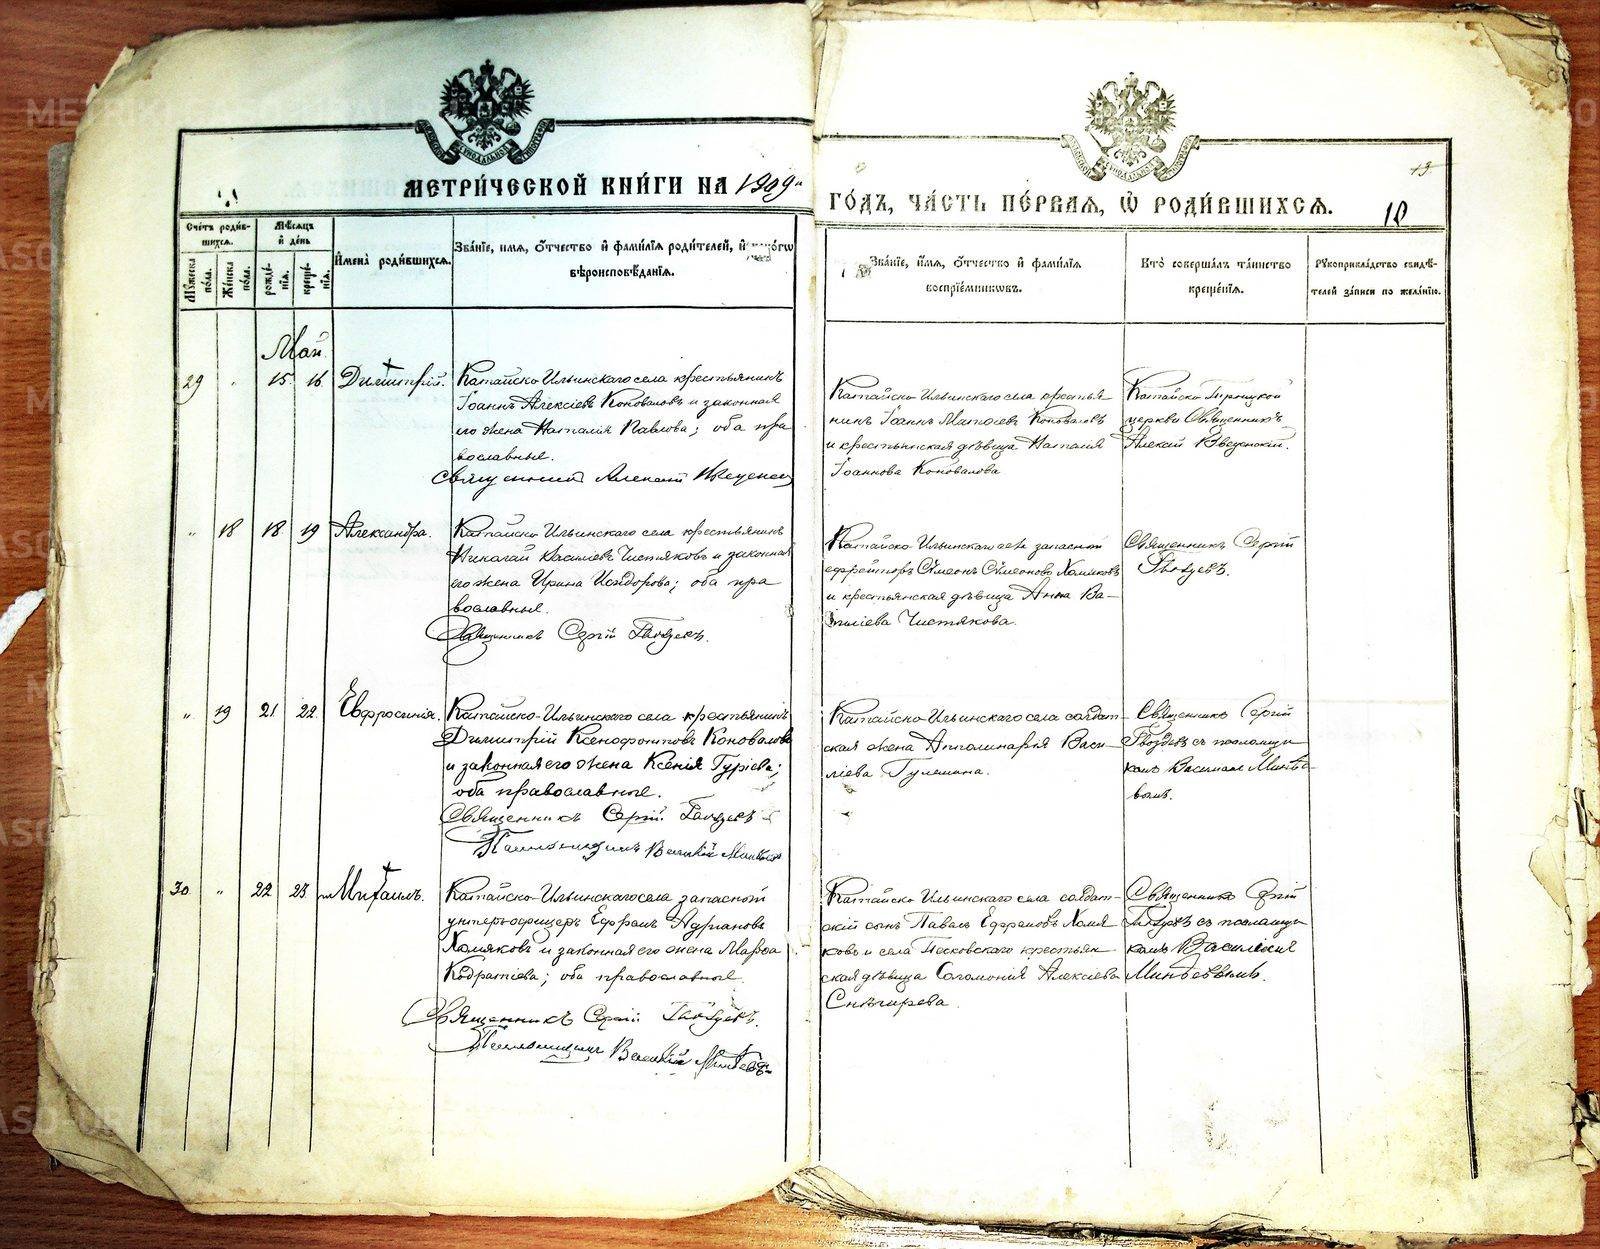 МЕТРИ́ЧЕСКОЙ КНИ́ГИ НА 1909й
ГО́ДЪ, ЧА́СТЬ ПЕ́РВАЯ, Ѡ РОДИ́ВШИХСЯ.
18
Сче́тъ роди́в-
шихся.
Му́жеска
пола.
Же́нска
пола.
Мѣ́сяцъ
и де́нь
рожде́-
нія.
креще́-
нія.
Имена̀ роди́вшихся.
Зва́ніе, имя, о́тчество и фами́лія роди́телей, и
вѣроисповѣ́данія.
Зва́ніе, и́мя, о́тчество и фами́лія
воспріе́мниковъ.
Кто̀ соверша́лъ та́инство
креще́нія.
Рукоприкла́дство свидѣ́-
телей за́писи по жела́нію.
Май.
29 " 15 16 Димитрій.
Катайско-Ильинскаго села крестьянинъ
Іоаннъ Алексіевъ Коноваловъ и законная
его жена Наталія Павлова; оба пра
вославные.
Священникъ Алексій Введенскій
Катайско-Ильинскаго села крестья
нинъ Іоаннъ Коноваловъ
и крестьянская дѣвица Наталія
Іоаннова Коновалова
Катайско-Троицкой
церкви Священникъ
Алексій Введенскій.
" 18 18 19 Александра.
Катайско-Ильинскаго села крестьянинъ
Николай Василіевъ Чистяковъ и законная
его жена Ирина Исидорова; оба пра
вославные.
Священникъ Сергій Гвоздевъ.
Катайско-Ильинскаго села запасной
ефрейторъ Сѵмеонъ Сѵмеоновъ Хомяковъ
и крестьянская дѣвица Анна Ва-
силіева Чистякова.
Священникъ Сергій
Гвоздевъ.
" 19 21 22 Евфросинія.
Катайско-Ильинскаго села крестьянинъ
Димитрій Ксенофонтовъ Коноваловъ
и законная его жена Ксенія Гуріева;
оба православные.
Священникъ Сергій Гвоздевъ
Псаломщикъ Василій
Катайско-Ильинскаго села солдат-
ская жена Апполинарія Васи-
ліева
Священникъ Сергій
Гвоздевъ съ псаломщи
комъ Василіемъ
30 " 22 23 Михаилъ.
Катайско-Ильинскаго села запасной
унтеръ-офицеръ Ефремъ Адріановъ
Хомяковъ и законная его жена Марѳа
Кодратіева; оба православные.
Священникъ Сергій Гвоздевъ.
Псаломщикъ Василій
Катайско-Ильинскаго села солдат-
скій сынъ Павелъ Ефремовъ Хомя
ковъ и села Песковскаго крестьян
ская дѣвица Соломонія Алексіева
Снѣгирева.
Священникъ Сергій
Гвоздевъ съ псаломщи
комъ Василіемъ